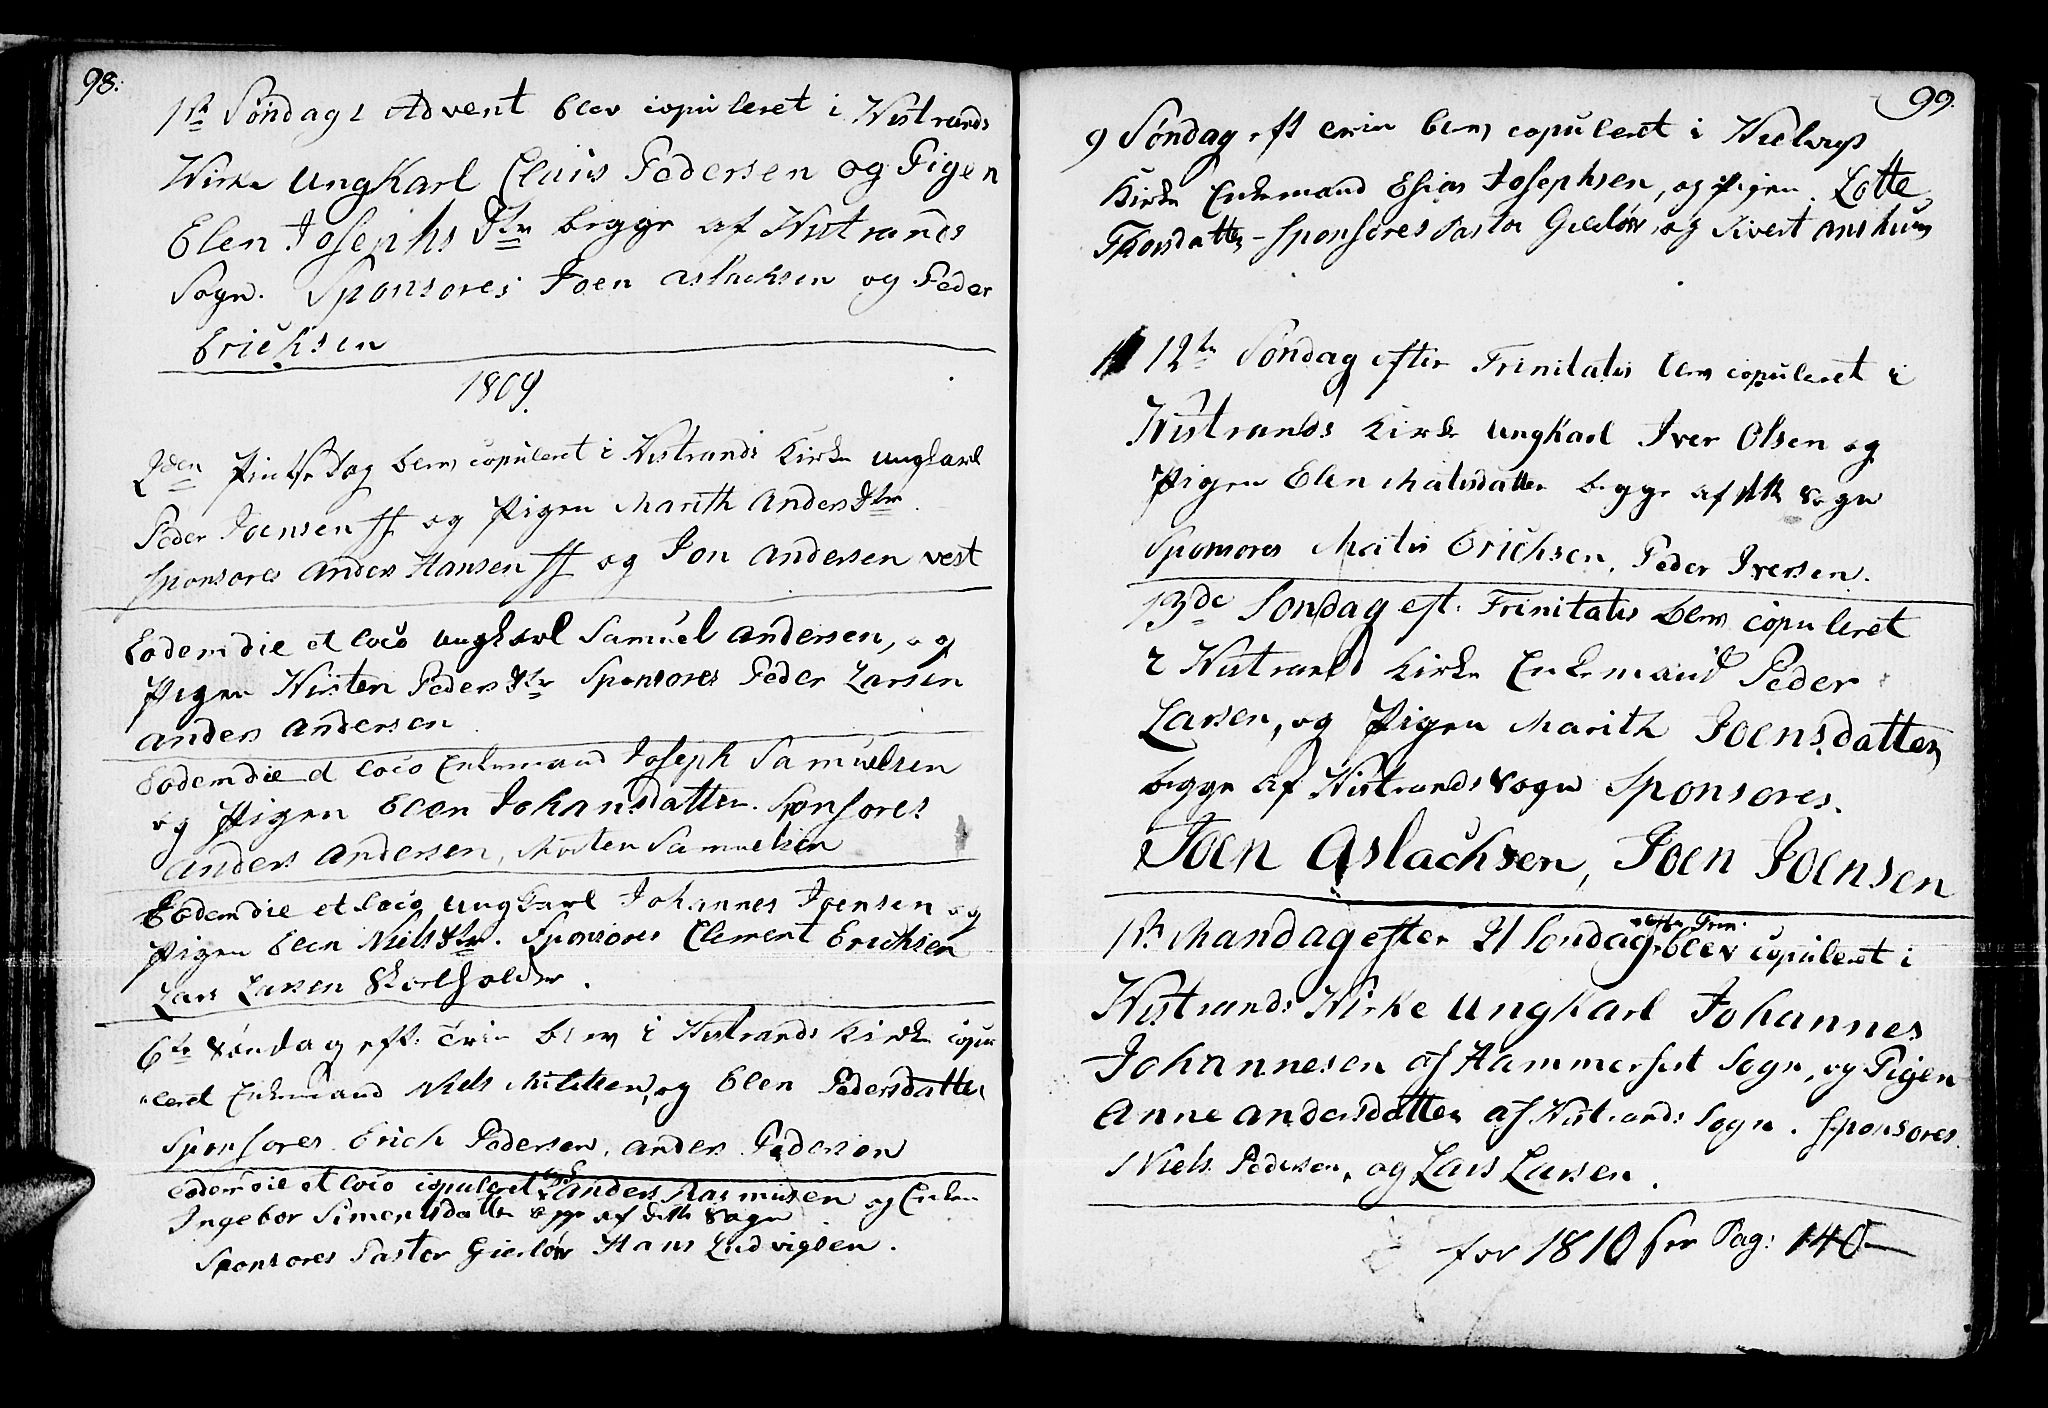 98.
1ste Søndag i Advent blev copuleret i Kistrands
Kirke UngKarl Claus Pedersen og Pigen
Elen Josephs Dtr begge af Kistrands
Sogn. Sponsores Joen Aslachsen og Peder
Erichsen
1809.
2den Pintsedag blev copuleret i Kistrands Kirke ungkarl
Peder Joensen ff og Pigen Marith Anders Dtr
Sponsores Anders Hansen ff og Jon Andersen vest
Eodem die et loco ungkarl Samuel Andersen, og
Pigen Kirsten Peders Dtr Sponsores Peder Larsen
Anders Andersen
Eodem die et loco Enkemand Joseph Samuelsen
og Pigen Elen Johansdatter. Sponsores
Anders Andersen, Morten Samuelsen
Eodem die et loco ungkarl Johannes Joensen og
Pigen Elen Niels Dtr. Sponsores Clement Erichsen
Lars Larsen
6te Søndag eft. Trin blev i Kistrands Kirke copu
leret Enkemand Niels Mickelsen, og Elen Pedersdatter
Sponsores Erich Pedersen, Anders Pedersen
Eodem die et loco copuleret Anders Rasmusen og Enken
Ingebor Simonsdatter begge af dette Sogn
Sponsores Pastor Gierløw Hans Ludvigsen.
99.
9 Søndag eft Trin blev copuleret i Kielvigs
Kirke Enkemand Esias Josephsen, og Pigen Lotte
Thorsdatter - Sponsores Pastor Gierløw, og Sivert
12te Søndag efter Trinitatis blev copuleret i
Kistrands Kirke UngKarl Iver Olsen og
Pigen Elen Matisdatter begge af dette Sogn
Sponsores Matis Erichsen, Peder Iversen.
13de Søndag eft. Trinitatis blev copuleret
i Kistrand Kirke Enkemand Peder
Larsen, og Pigen Marith Joensdatter
begge af Kistrands Sogn Sponsores.
Joen Aslachsen, Joen Joensen
1ste Mandag efter 21 Søndag efter Trin. blev copuleret i
Kistrands Kirke UngKarl Johannes
Johannesen af Hammerfest Sogn, og Pigen
Anne Andersdatter af Kistrands Sogn. Sponsores
Niels Pedersen, og Lars Larsen.
for 1810 see Pag: 140